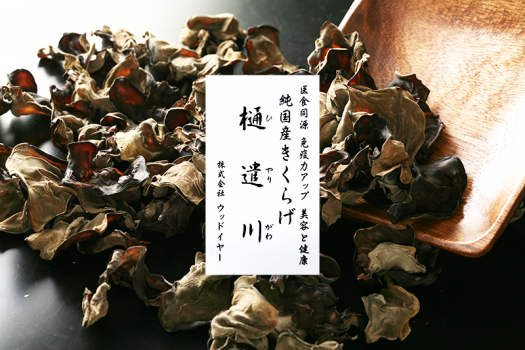 医食同源 免疫力アップ 美容と健康
純国産きくらげ
樋遣川
ひやりがわ
株式会社 ウッドイヤー